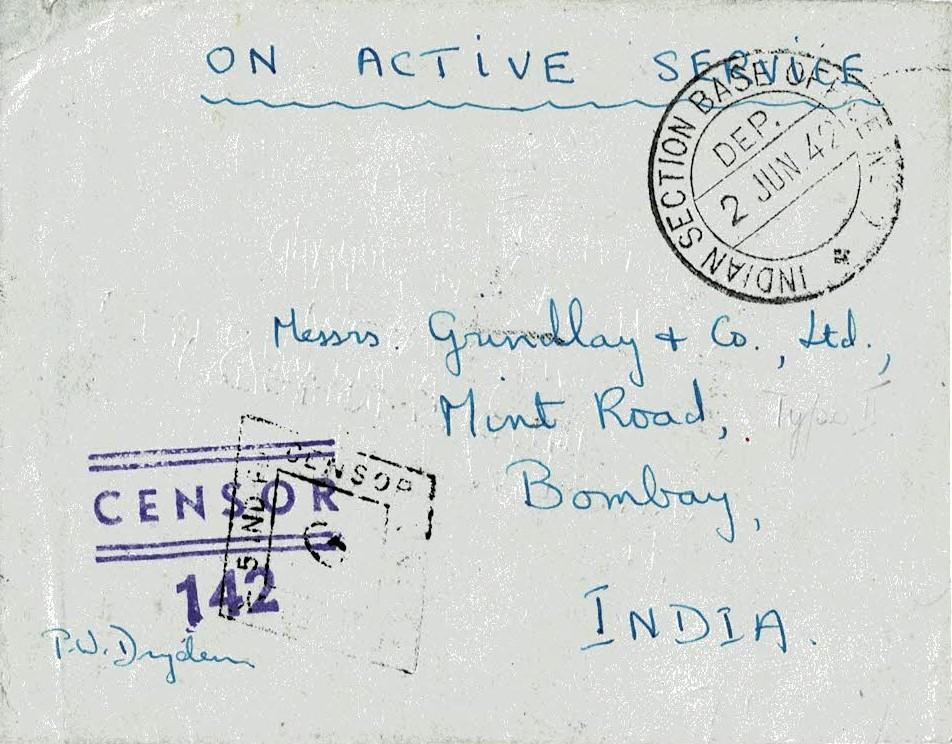 ON ACTIVE SERVICE
INDIAN SECTION BASE OFFICE
DEP.
2 JUN 42
Messrs. Grindlay & Co., Ltd.,
Mint Road,
Type
Bombay,
INDIA.
CENSOR
142
CENSOR
5 IND
P.W. Dryden